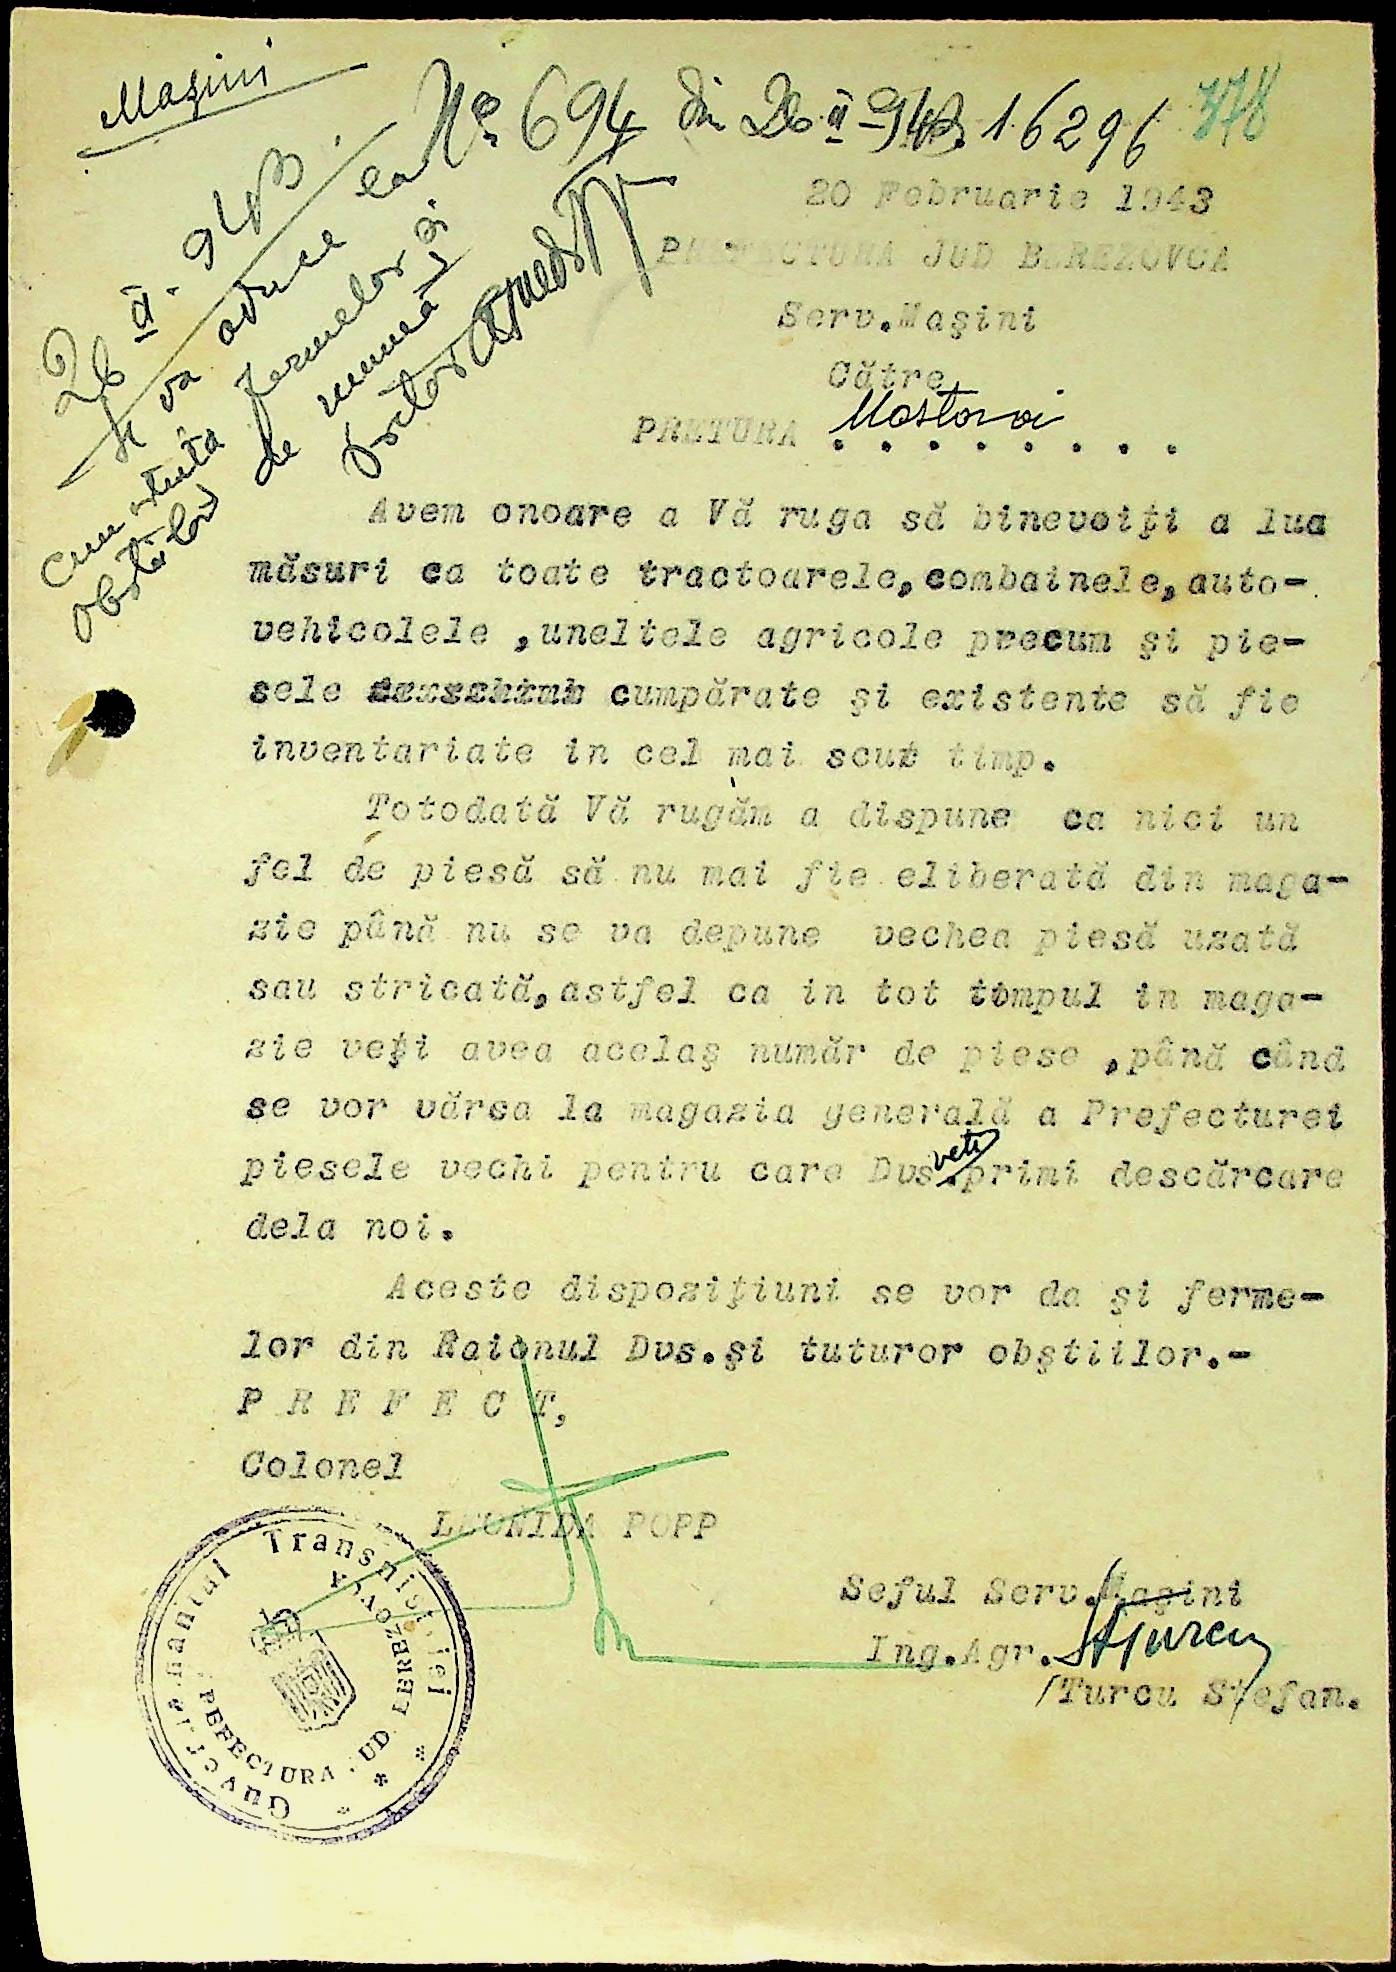 Mașini
Nº 694 din 26 II 943. 16296 378
20 Februarie 1943
PREFECTURA JUD BEREZOVCA
Serv.Mașini
Către,
PRETURA Mostovoi . . . . . . . . .
26 II. 943.
Se va aduce la
cunoștința fermelor și
obștilor de muncă
Pretor
Avem onoare a Vă ruga să binevoiţi a lua
măsuri ca toate tractoarele,combainele,auto-
vehicolele ,uneltele agricole precum şi pie-
sele cumpărate şi existente să fie
inventariate in cel mai scurt timp.
Totodată Vă rugăm a dispune ca nici un
fel de piesă să nu mai fie eliberată din maga-
zie până nu se va depune vechea piesă uzată
sau stricată,astfel ca in tot timpul in maga-
zie veţi avea acelaş număr de piese ,până când
se vor vărsa la magazia generală a Prefecturei
piesele vechi pentru care Dvs. veti primi descărcare
dela noi.
Aceste dispoziţiuni se vor da şi ferme-
lor din Raionul Dvs.şi tuturor obştiilor.-
P R E F E C T,
Colonel
LEONIDA POPP
Guvernamantul Transnistriei
PEFECTURA JUD BEREZOVCA
Seful Serv.Maşini
Ing.Agr. STurcu
/Turcu Stefan.